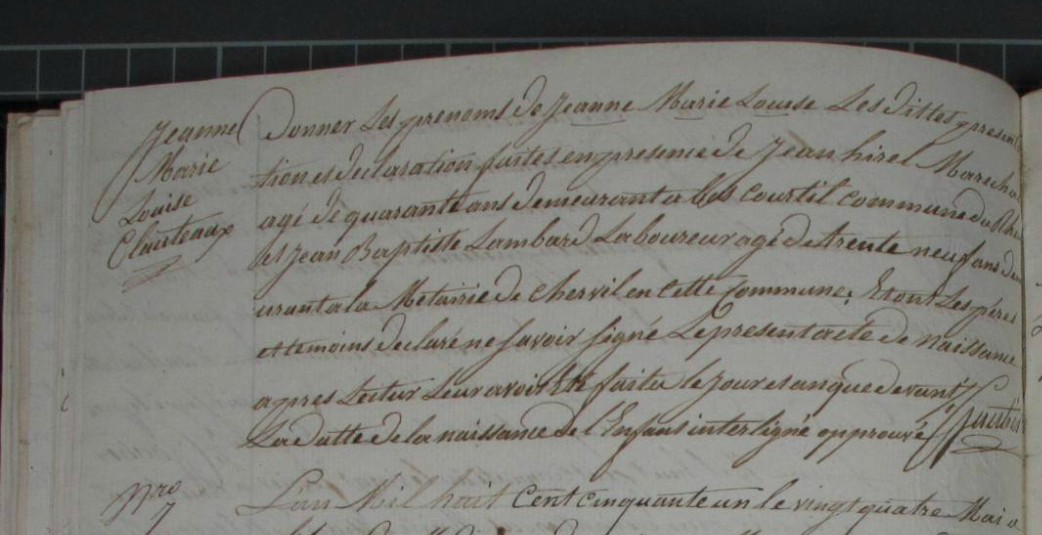 Jeanne
Marie
Louise
Clauteaux
Donner Les prenoms de Jeanne Marie Louise Les dittes presen
tion et declaration faites en presence de Jean hirel Marecha
agé de quarante ans demeurant a bas courtil commune du
et Jean Baptiste Lambard Laboureur agé de trente neuf ans dem
urant a la Metairie de Chervil en Cette Commune; Et ont Les péres
et temoins declaré ne Savoir Signé Le present acte de Naissance
apres Lectur Leur avoir Eté faitu le jour et an que devant
La datte de la naissance de l'Enfant interligné approuvé
Nro
7
L'an Mil huit cent cinquante un le vingt quatre Mai a